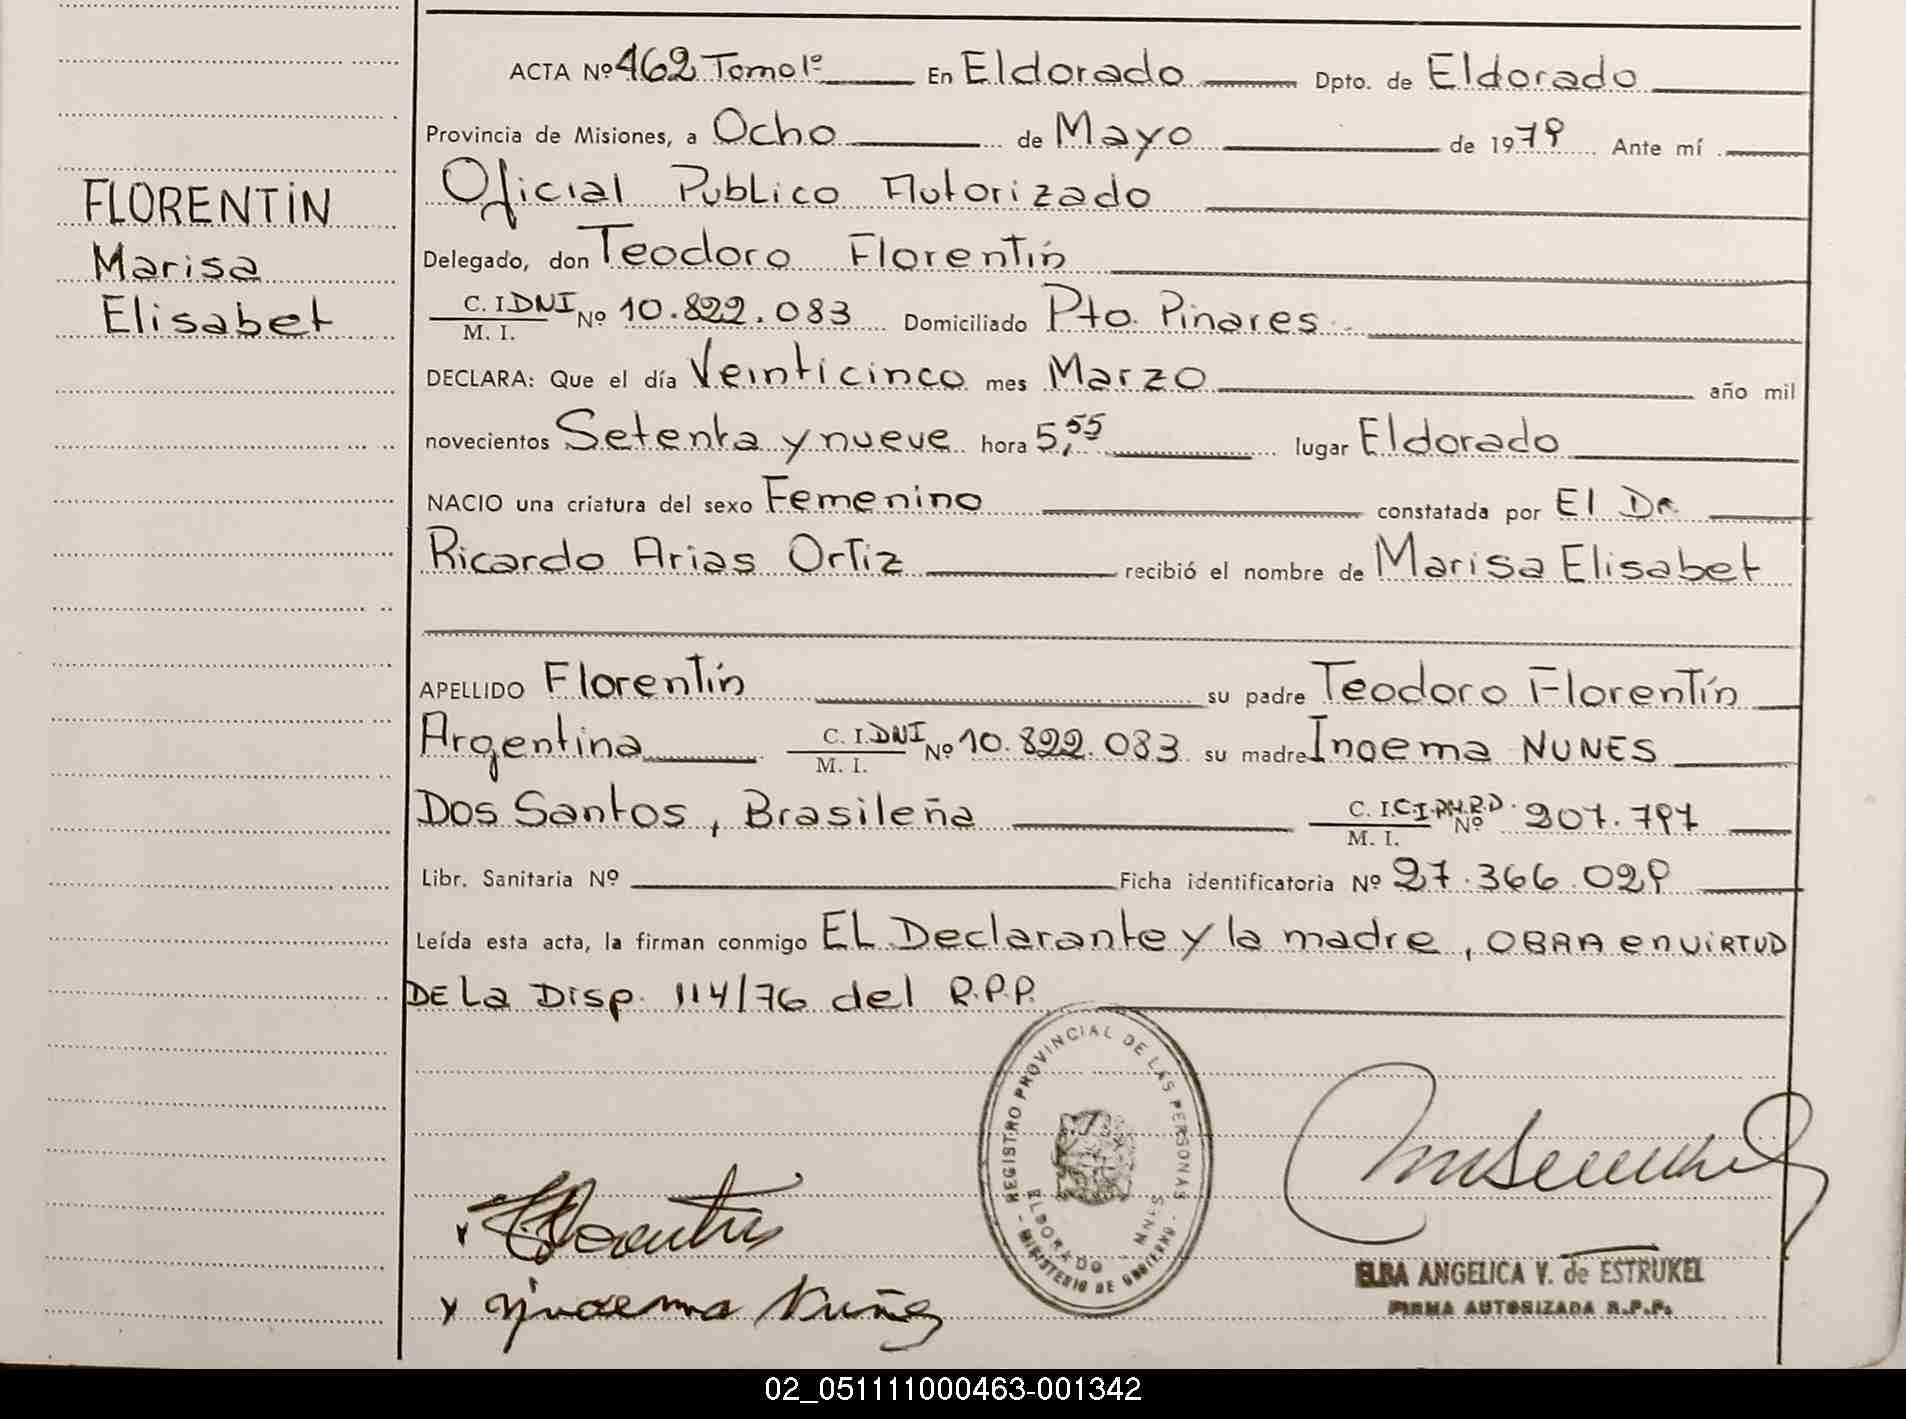 ACTA Nº 462 Tomo 1º En Eldorado Dpto. de Eldorado
Provincia de Misiones, a Ocho de Mayo de 1979 Ante mí
Oficial Publico Autorizado
FLORENTÍN
Marisa
Elisabet
Delegado, don Teodoro Florentín
C. I. DNI Nº 10.822.083 Domiciliado Pto. Pinares
M. I.
DECLARA: Que el día Veinticinco mes Marzo año mil
novecientos Setenta y nueve hora 5,55 lugar Eldorado
NACIO una criatura del sexo Femenino constatada por El Dr.
Ricardo Arias Ortiz recibió el nombre de Marisa Elisabet
APELLIDO Florentín su padre Teodoro Florentín
Argentina C. I. DNI Nº 10.822.083 su madre Inoema NUNES
M. I.
Dos Santos, Brasileña C. I. C.I. Nº 907.797
M. I.
Libr. Sanitaria Nº Ficha identificatoria Nº 27.366.029
Leída esta acta, la firman conmigo EL Declarante y la madre, OBRA en ViRTUD
DE La Disp. 114/76 del R.P.P.
REGISTRO PROVINCIAL DE LAS PERSONAS
MINISTERIO DE GOBIERNO
ELDORADO - MNIS
x Florentin
x Ynoema Nuñes
ELBA ANGELICA V. de ESTRUKEL
FIRMA AUTORIZADA R.P.P.
02_051111000463-001342